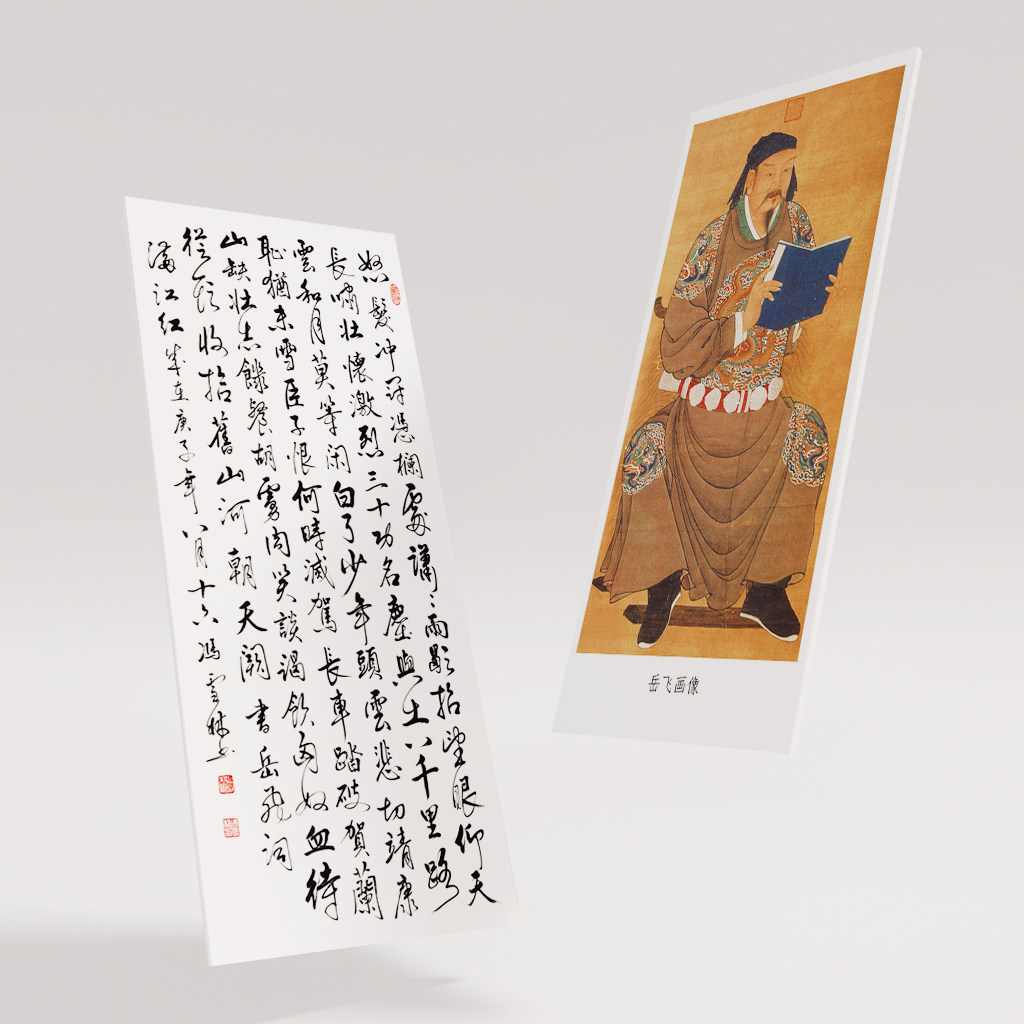 怒髮冲冠憑欄處瀟々雨歇抬望眼仰天
長嘯壯懷激烈三十功名塵與土八千里路
雲和月莫等闲白了少年頭雲悲切靖康
恥猶未雪臣子恨何時滅駕長車踏破賀蘭
山缺壯志饑餐胡虜肉笑談渴飲匈奴血待
從頭收拾舊山河朝天闕書岳飛詞
滿江红歲在庚子年八月十六馮雪林书
岳飞画像